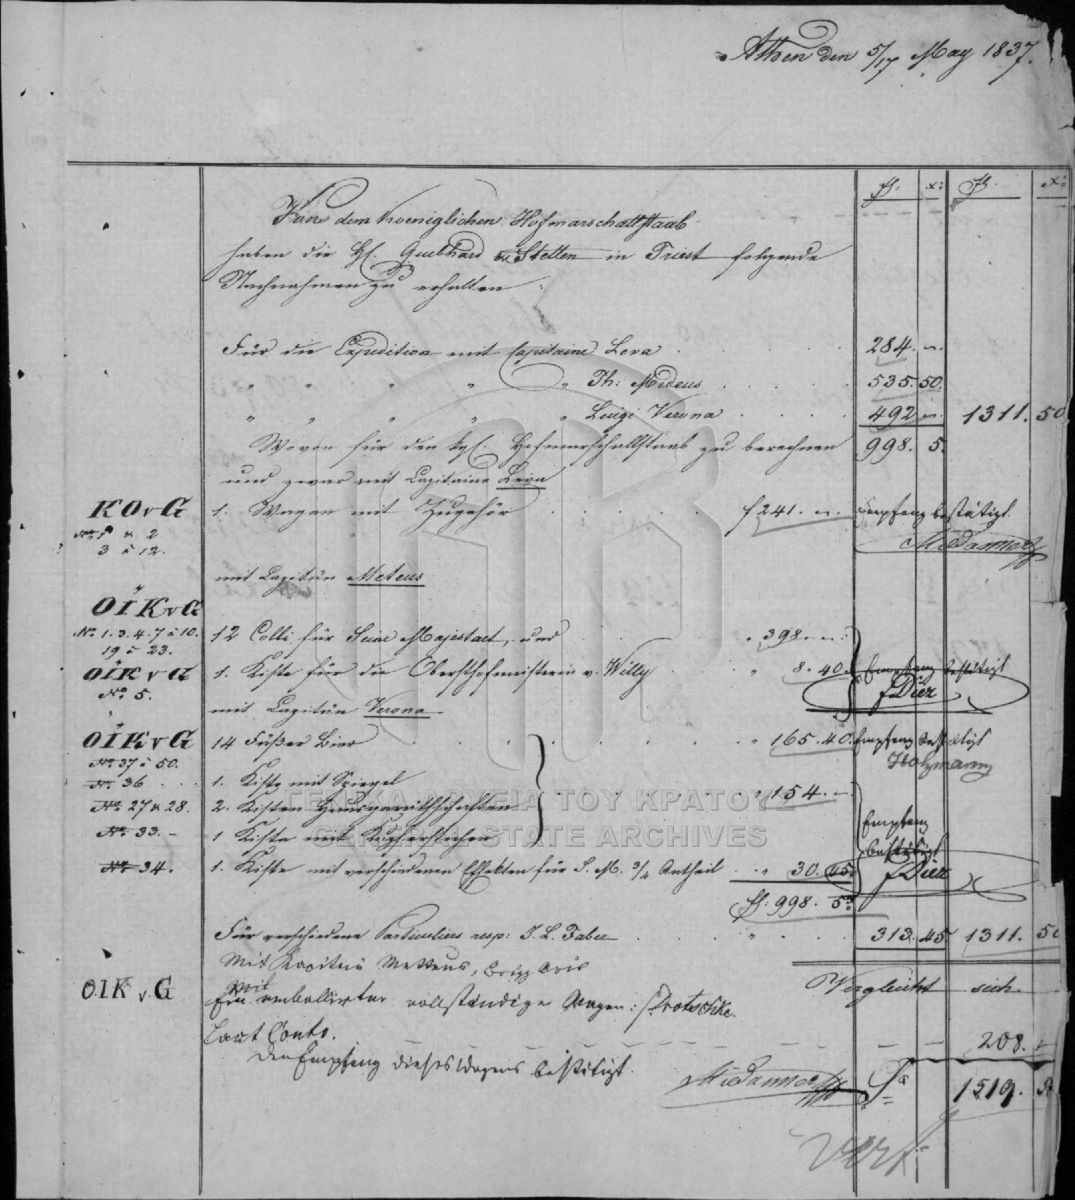 Athen den 5/17 May 1837.
fl. x: fl. x:
Von dem Koeniglichen Hofmarschallstaab
haben die H. Guebhard & Stellen in Triest folgende
Nachnahmen zu erhalten:
Für die Expedition mit Capitaine Leva 284. "
" " " " " Th: Meteus 535. 50.
" " " " " Luigi Verona 492 " 1311. 50
Wovon für den Kgl. Hofmarschallstaab zu berechnen 998. 5.
und zwar mit Capitaine Leva
KOvG 1. Wagen mit Zugehör f 241. " Empfang bestätigt
No. 1 u. 2
3 à 12.
mit Capitän Meteus
OIKvG
No. 1. 3. 4. 7 à 10. 12 Colli für Seine Majestaet, und " 398. "
19 à 23.
OIKvG 1. Kiste für die Obersthofmeisterin v. Willy " 8. 40. Empfang bestätigt
No. 5. Diez
mit Capitän Verona
OIKvG 14 Fäßer Bier " 165. 40. Empfang bestätigt
No. 37 à 50. Holzmann
No. 36 1. Kiste mit Spiegel
No. 27 u. 28. 2. Kisten Hausgeräthschaften " 154. "
No. 33. 1 Kiste mit Kupferstichen Empfang
bestätigt
No. 34. 1. Kiste mit verschiedenen Effekten für S. M. 3/4 Antheil " 30. 45 Diez
fl: 998. 5
Für verschiedene Particuliers resp: J. L. Faber " 313. 45 1311. 50
Mit Kapitain Metteus,
OIK v G Ein emballirter vollständiger Wagen: Vergleicht sich.
Laut Conto. 208.
Den Empfang dieses Wagens bestätigt.
1519.
ΓΕΝΙΚΑ ΑΡΧΕΙΑ ΤΟΥ ΚΡΑΤΟΥΣ
GENERAL STATE ARCHIVES